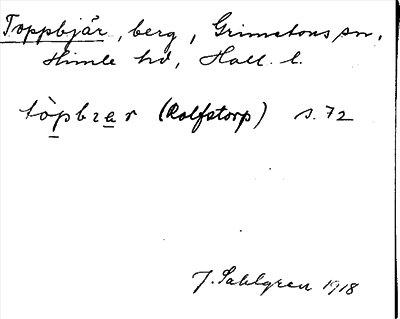 Toppbjär, berg, Grimetons sn,
Himle hd, Hall. l.
tòpbɛar (Rolfstorp) s. 72
J. Sahlgren 1918